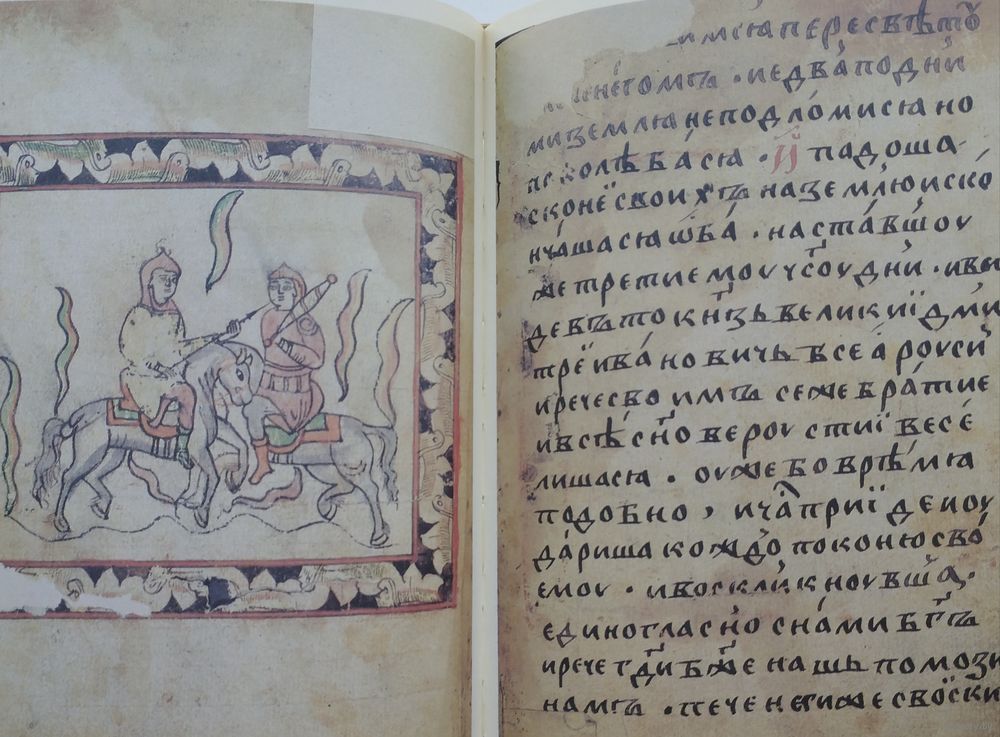 имсѧ пересвѣтꙋ
нѣгомъ · и едва́ под ни́
ми землѧ не подло́мисѧ но
колѣба́сѧ · И҆ падоша
с коне́ своихъ на зе́млю и ско
нча́шасѧ ѡ҆ба́ · наста́вшоу
же третиемоу ча́соу дни́ · и ви
девъ то кн҃зь великиї дми
трей ива́новичь всеа́ роуси́
и рече свои́мъ се же бра́тие
и всѣ сн҃ове роустиї весе́
лишасѧ · оуже бо врѣмѧ
подобно , и ча́с приїде и оу
да́риша кождо по коню сво
емоу · и воскли́кноувша ·
единогласно с на́ми бг҃ъ
и рече гдⷭ҇и бж҃е нашь помози
намъ · печенегиже свои ски